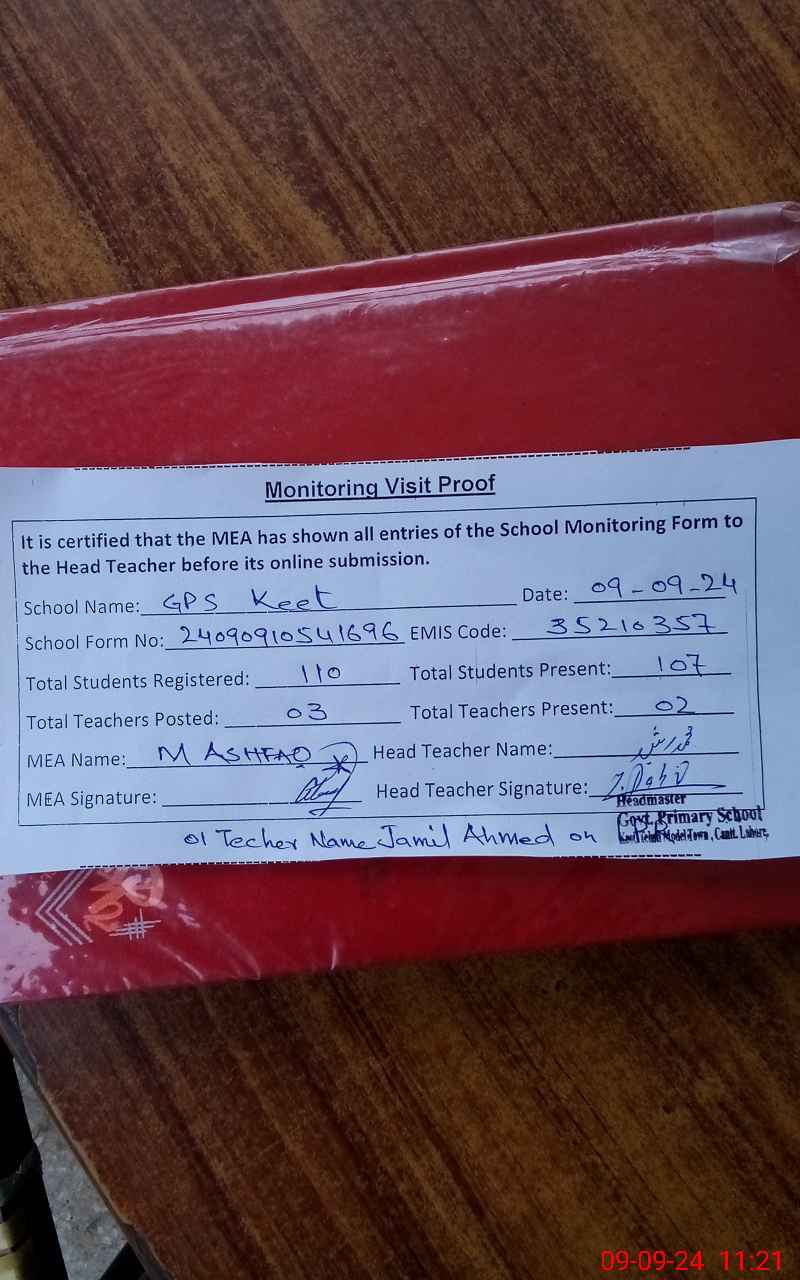 Monitoring Visit Proof
It is certified that the MEA has shown all entries of the School Monitoring Form to
the Head Teacher before its online submission.
School Name: GPS Keet Date: 09-09-24
School Form No: 24090910541696 EMIS Code: 35210357
Total Students Registered: 110 Total Students Present: 107
Total Teachers Posted: 03 Total Teachers Present: 02
MEA Name: M ASHFAQ Head Teacher Name:
MEA Signature: Head Teacher Signature:
Headmaster
Govt. Primary School
Model Town, Cantt. Lahore.
01 Techer Name Jamil Ahmed on
09-09-24 11:21